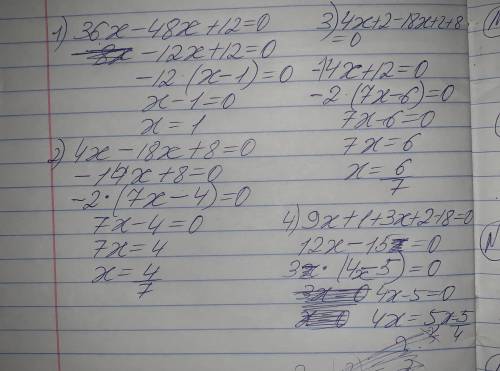 1) 36x-48x+12=0
-12x+12=0
-12·(x-1)=0
x-1=0
x=1
2) 4x-18x+8=0
-14x+8=0
-2·(7x-4)=0
7x-4=0
7x=4
x=4/7
3) 4x+2-18x+2+8
=0
-14x+12=0
-2·(7x-6)=0
7x-6=0
7x=6
x=6/7
4) 9x+1+3x+2-18=0
12x-15=0
3·(4x-5)=0
4x-5=0
4x=5 x=5/4